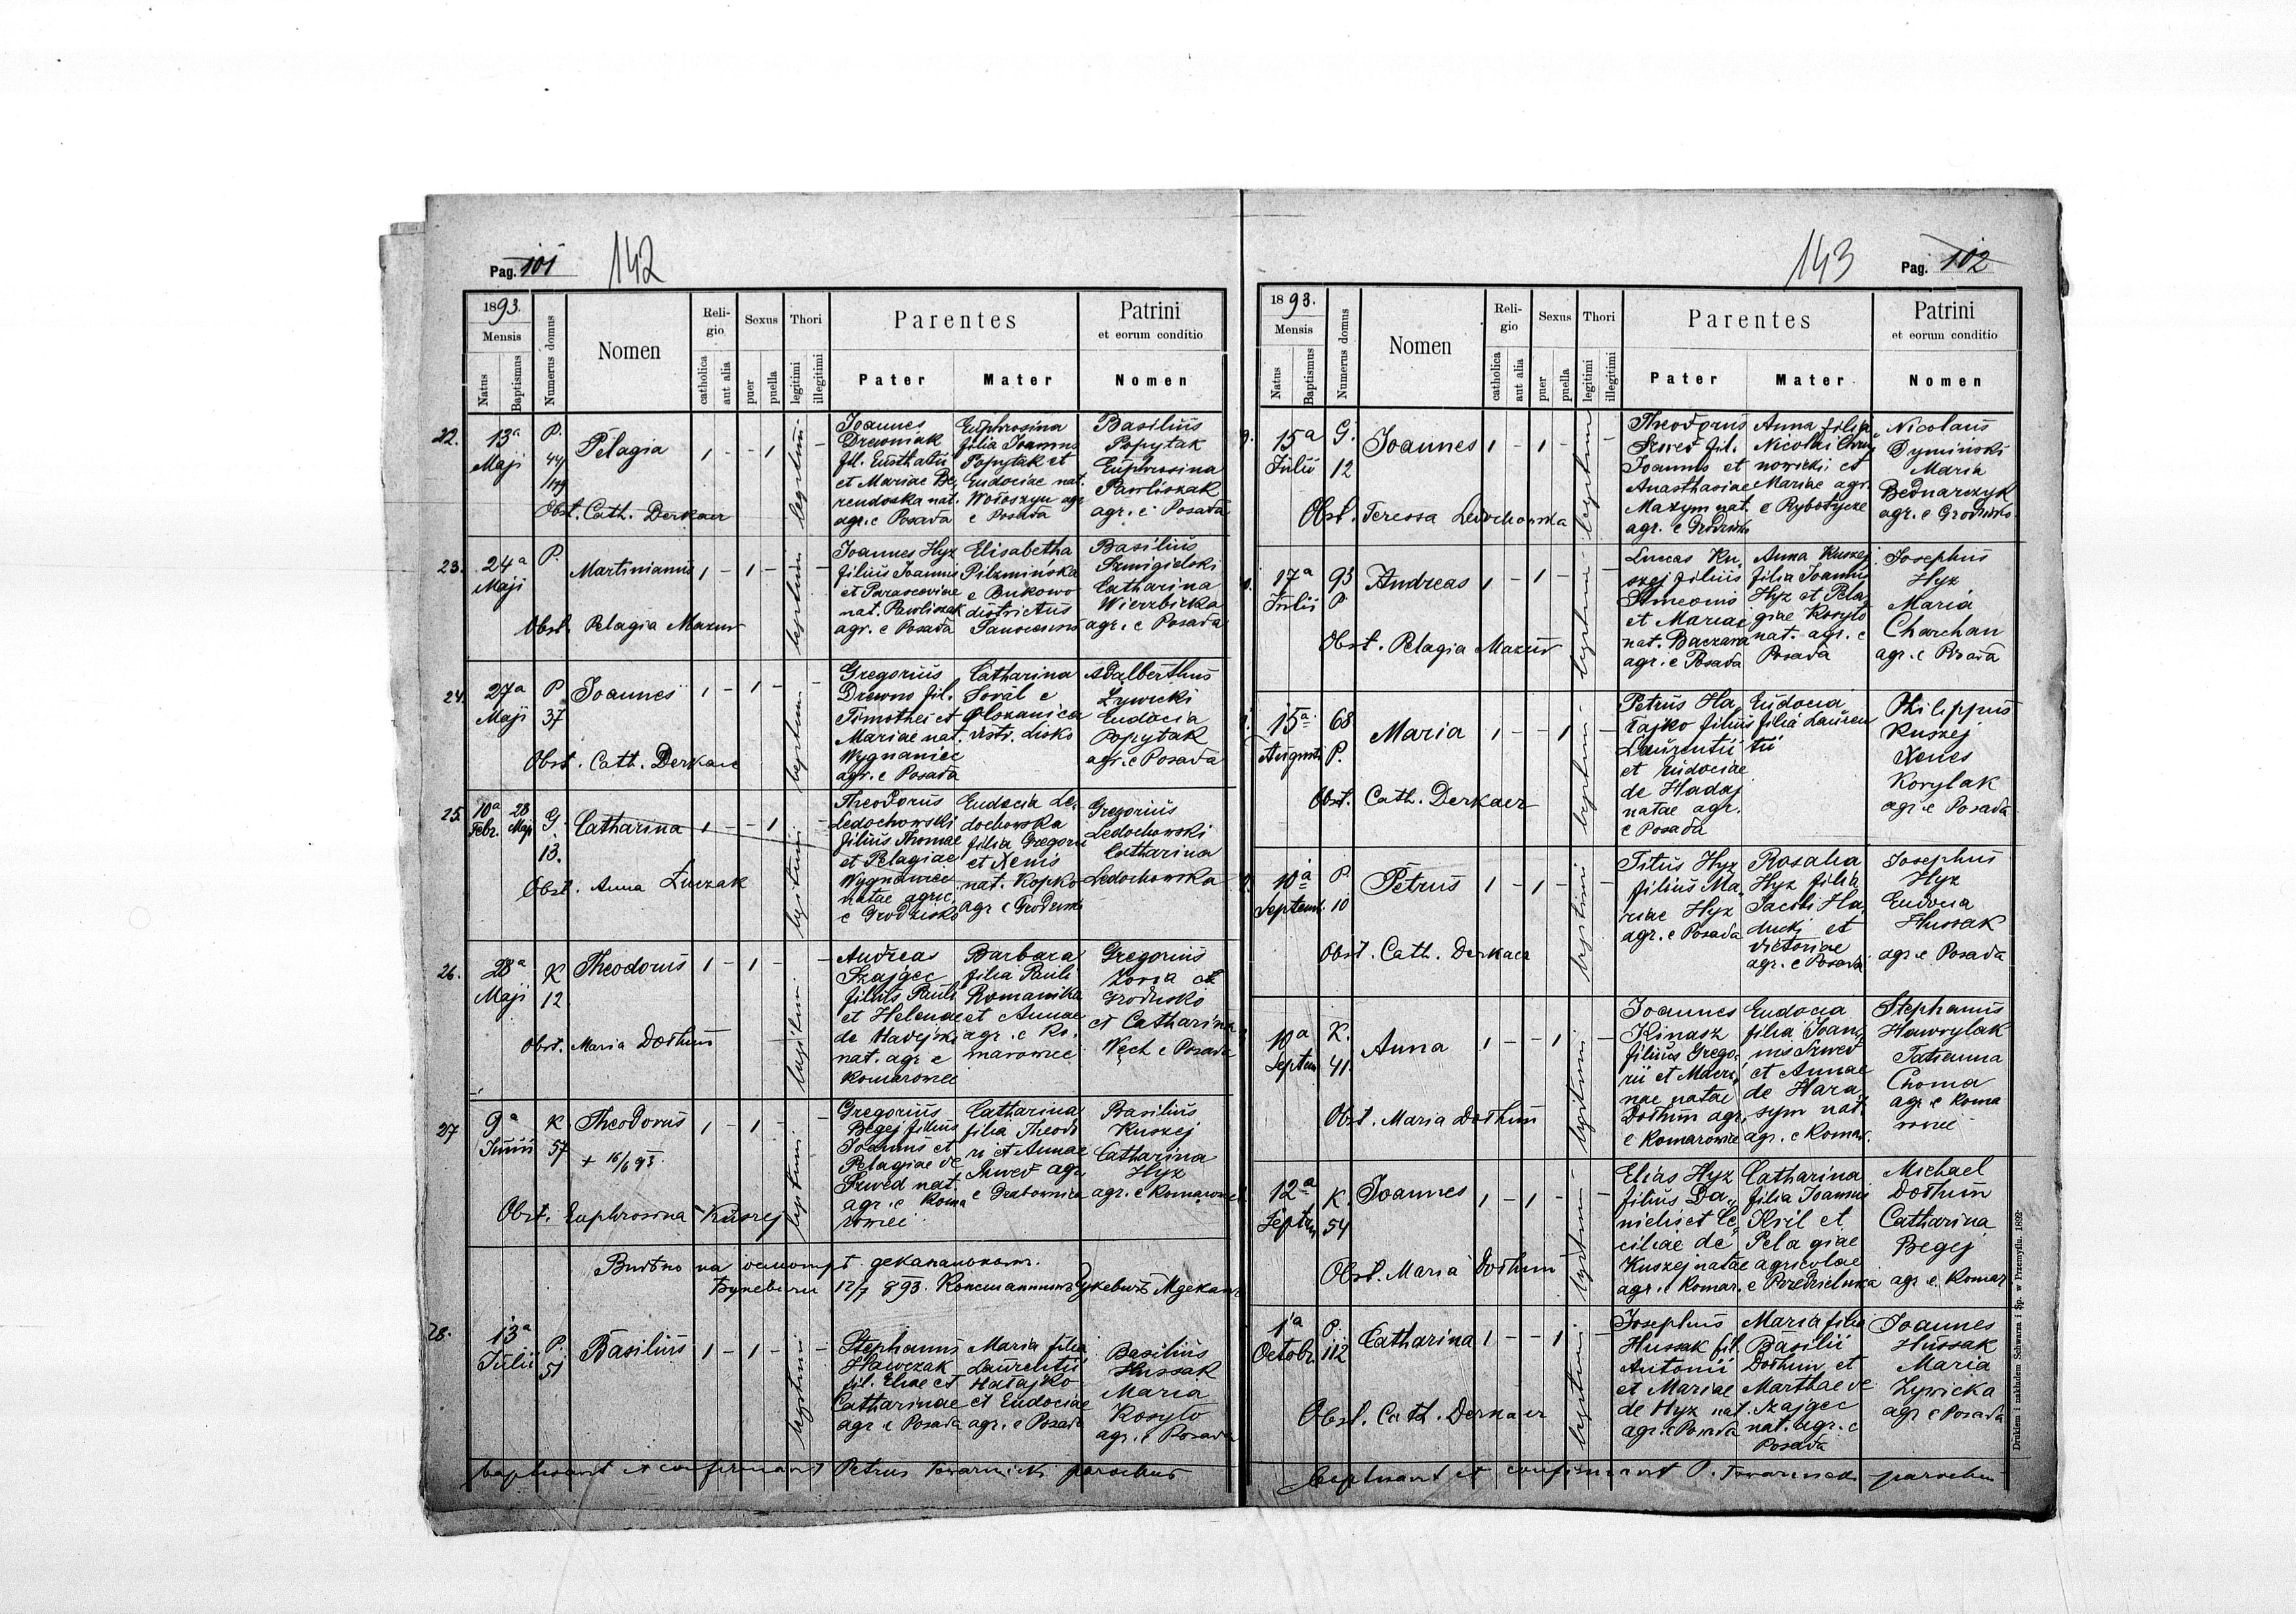 Pag. 101
142
1893.
Mensis
Natus
Baptismus
Numerus domus
Nomen
Religio
catholica
aut alia
Sexus
puer
puella
Thori
legitimi
illegitimi
Parentes
Pater
Mater
Patrini
et eorum conditio
Nomen
22.
13a
Maji
P.
44/119
Pelagia
1 - - 1
legitimi
Obst. Cath. Derkacz
Joannes
Drewniak
fil. Eusthatii
et Mariae
nat.
agr. e Posada
Euphrosina
filia Joannis
Popytak et
Eudociae nat.
Wołoszyn agr.
e Posada
Basilius
Popytak
Euphrosina
Pawliszak
agr. e Posada
23.
24a
Maji
P.
Martinianus
1 - 1 -
legitimi
Obst. Pelagia Mazur
Joannes Hyz
filius Joannis
et Parasceviae
nat. Pawliszak
agr. e Posada
Elisabetha
Pilzmińska
e Bukowo
districtus
Sanocensis
Basilius
Szmigielski
Catharina
Wierzbicka
agr. e Posada
24.
27a
Maji
P
37
Joannes
1 - 1 -
legitimi
Obst. Cath. Derkacz
Gregorius
Drewno fil.
Timothei et
Mariae nat.
Wygnaniec
agr. e Posada
Catharina
Sorał e
Olszanica
distr. Lisko
Adalberthus
Zywicki
Eudocia
Popytak
agr. e Posada
25.
10a
Febr.
28
Maji
G.
13.
Catharina
1 - - 1
legitimi
Obst. Anna Łuczak
Theodorus
Ledochowski
filius Thomae
et Pelagiae
Wygnaniec
natae agric.
e Grodzisko
Eudocia Le-
dochowska
filia Gregorii
et Xenis
nat. Kopko
agr e Grodzisko
Gregorius
Ledochowski
Catharina
Ledochowska
26.
28a
Maji
K
12
Theodorus
1 - 1 -
legitimi
Obst. Maria Dothun
Andreas
Szajgec
filius Pauli
et Helenae
de
nat. agr e
Komarowice
Barbara
filia Pauli
Romanika
et Annae
agr. e Ko-
marowice
Gregorius
Zona et
Grodzisko
et Catharina
Węch e Posada
27
9a
Junii
K
57
Theodorus
1 - 1 -
+ 16/6 93.
legitimi
Obst. Euphrosina Kuszej
Gregorius
Begej filius
Joannis et
Pelagiae de
Szwed nat.
agr. e Koma
rowice
Catharina
filia Theodo
ri et Annae
Szwed agr.
e Grabownica
Basilius
Kuszej
Catharina
Hyz
agr. e Komarowice
12/7 893.
28.
13a
Julii
P.
51
Basilius
1 - 1 -
legitimi
Stephanus
Hawczak
fil. Eliae et
Catharinae
agr e Posada
Maria filia
Laurentii
Hatajko
et Eudociae
agr. e Posada
Basilius
Hussak
Maria
Kosyło
agr. e Posada
baptisavit et confirmavit Petrus Towarnicki parochus
143
Pag. 102
1893.
Mensis
Natus
Baptismus
Numerus domus
Nomen
Religio
catholica
aut alia
Sexus
puer
puella
Thori
legitimi
illegitimi
Parentes
Pater
Mater
Patrini
et eorum conditio
Nomen
15a
Julii
G.
12
Joannes
1 - 1 -
legitimi
Obst. Teressa Ledochowska
Theodorus
Szwed fil.
Joannis et
Anasthasiae
Mazym nat.
agr. e Grodzisko
Anna filia
Nicolai
nowicki et
Mariae agr.
e Rybotycze
Nicolaus
Dymiński
Maria
Bednarczyk
agr. e Grodzisko
17a
Julii
93
P
Andreas
1 - 1 -
legitimi
Obst. Pelagia Mazur
Lucas Ku-
szej filius
Simeonis
et Mariae
nat. Baczara
agr. e Posada
Anna Kuszej
filia Joannis
Hyz et Pela-
giae Kosyło
nat. agr. e
Posada
Josephus
Hyz
Maria
Charchan
agr. e Posada
15a
Augusti
68
P.
Maria
1 - - 1
legitimi
Obst. Cath. Derkacz
Petrus Ha-
tajko filius
Laurentii
et Eudociae
de Hadaj
natae agr.
e Posada
Eudocia
filia Lauren
tii
Philippus
Kuszej
Xenes
Korylak
agr. e Posada
10a
Septemb.
P.
10
Petrus
1 - 1 -
legitimi
Obst. Cath. Derkacz
Titus Hyz
filius Ma-
riae Hyz
agr. e Posada
Rosalia
Hyz filia
Jacobi Ha-
ducki et
Victoriae
agr. e Posada
Josephus
Hyz
Eudocia
Hussak
agr. e Posada
10a
Septem
K.
41.
Anna
1 - - 1
legitimi
Obst. Maria Dothun
Joannes
Kinasz
filius Grego-
rii et Macri-
nae natae
Dothun agr.
e Komarowice
Eudocia
filia Joan-
nis Szwed
et Annae
de Hara-
sym nat.
agr. e Komar.
Stephanus
Hawrylak
Tatianna
Choma
agr. e Koma
rowice
12a
Septem
K.
54
Joannes
1 - 1 -
legitimi
Obst. Maria Dothun
Elias Hyz
filius Da-
nielis et Ce-
ciliae de
Kuszej natae
agr. e Komar.
Catharina
filia Joannis
Kril et
Pelagiae
agricolae
e Przedzielnica
Michael
Dothun
Catharina
Begej
agr. e. Komar
1a
Octobr.
P.
112
Catharina
1 - - 1
legitimi
Obst. Cath. Derkacz
Josephus
Hussak fil.
Antonii
et Mariae
de Hyz nat.
agr. e Posada
Maria filia
Basilii
Dothun et
Marthae de
Szajgec
nat. agr. e
Posada
Joannes
Hussak
Maria
Zywicka
agr e Posada
baptisavit et confirmavit P. Towarnicki parochus
Drukiem i nakładem Schwarza i Sp. w Przemyślu. 1892.